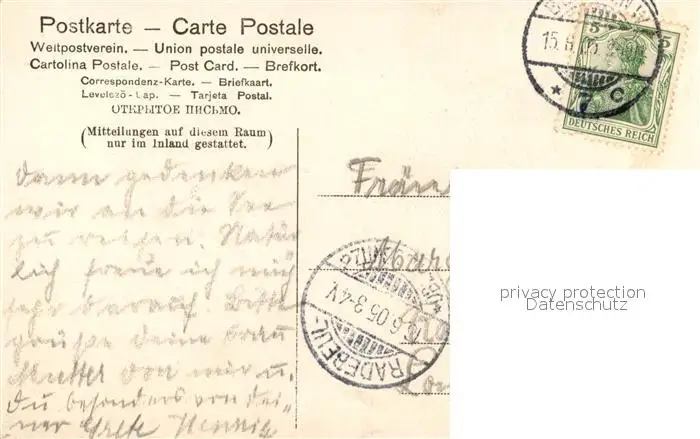 Postkarte — Carte Postale
Weltpostverein. — Union postale universelle.
Cartolina Postale. — Post Card. — Brefkort.
Correspondenz-Karte. — Briefkaart.
Levelezö-Lap. — Tarjeta Postal.
ОТКРЫТОЕ ПИСЬМО.
(Mitteilungen auf diesem Raum
nur im Inland gestattet.)
15.6.05
7 C
5
DEUTSCHES REICH
dann gedenken
wir an die See
zu reisen. Natür
lich freue ich mich
sehr darauf. Bitte
grüße deine
Mutter von mir u.
du besonders von dei-
ner Grete Hennig
Frän
RADEBEUL
6.05.3-4V.
privacy protection
Datenschutz